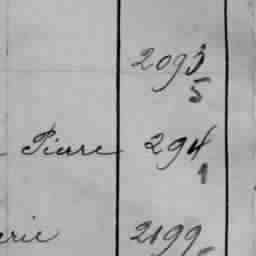 2093
5
Pierre 294
1
erie 2199